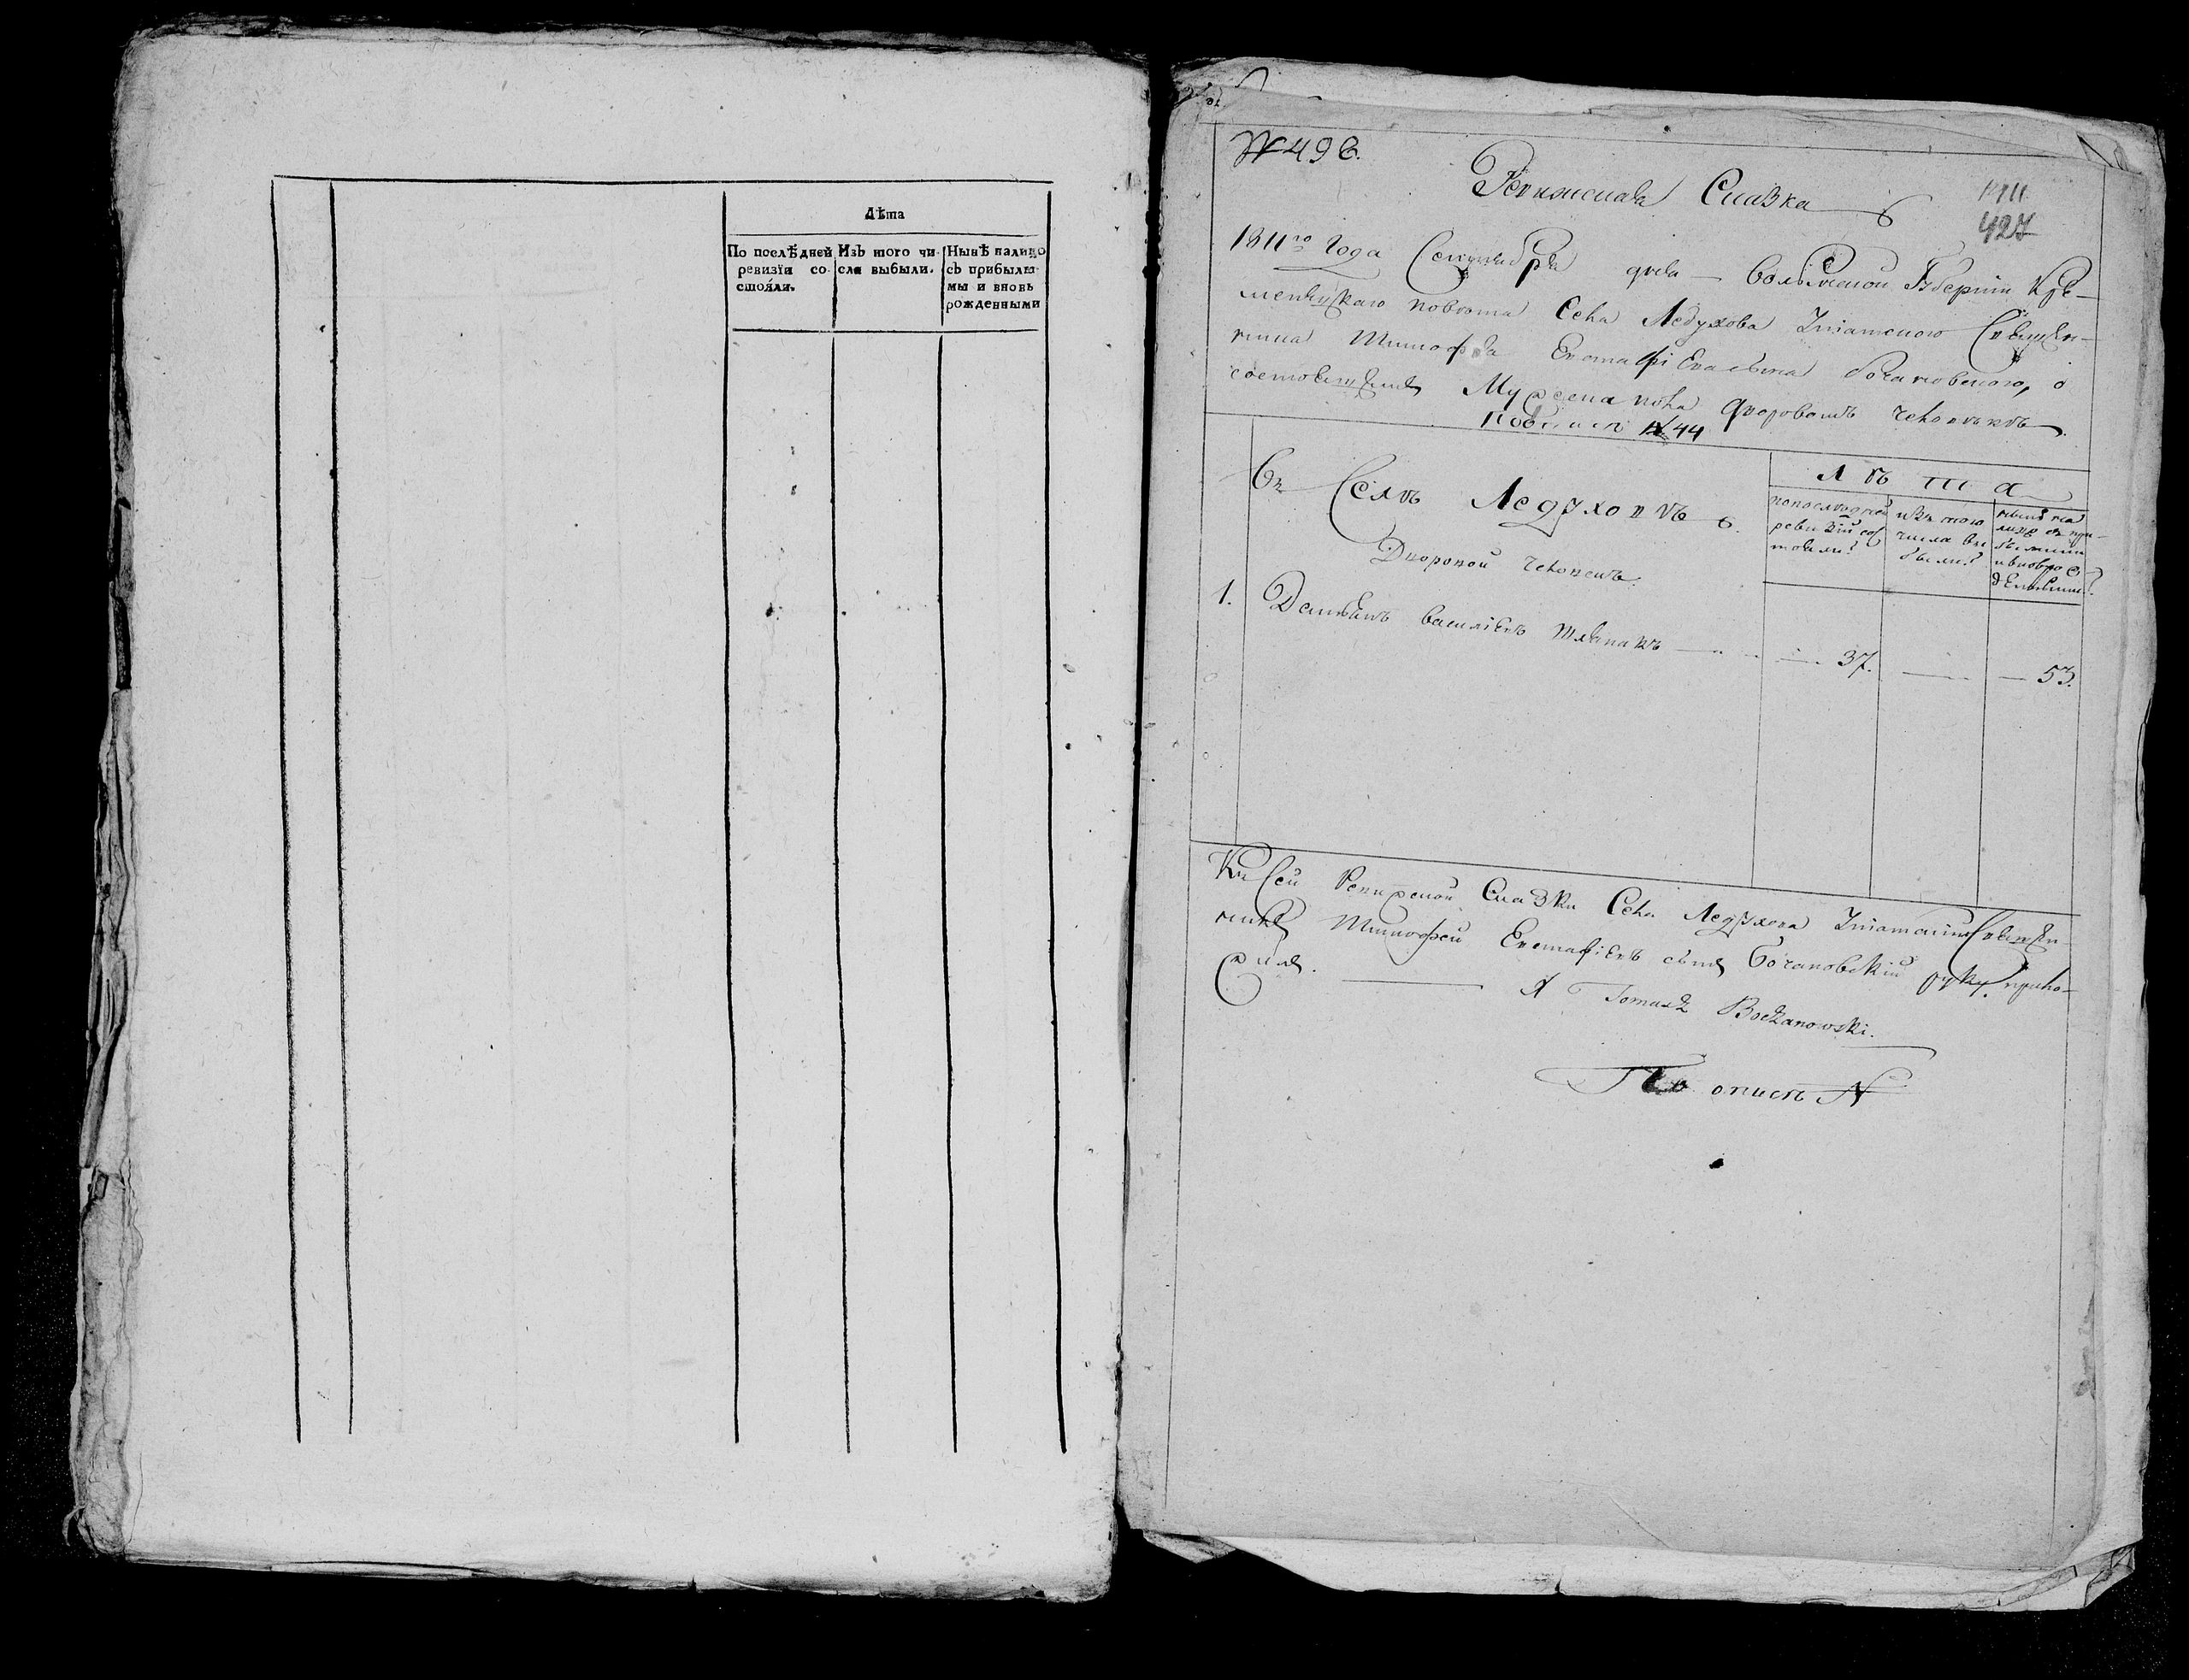 Лѣта
По послѣдней ревизіи со-стояли.
Изъ того чи-сла выбыли.
Нынѣ налицо съ прибылы-ми и вновь рожденными
№ 496.
Ревижская Сказка
427
1811го Года Сентября дня Волынской Губерніи Кре-
менецкаго повѣта Села Ледухова Священ-
ника Тимофея Евстафіева сына Бочановского, о
состоящемъ Мужеска пола дворовомъ человѣкѣ
№ 44
Въ Селѣ Ледуховѣ
Лѣта
по последней ревизіи со стояли?
изъ того числа вы были?
нынѣ на лицо съ при-былыми и вновь рожденными?
Дворовой человекъ.
1. Демьянъ Василіевъ — 37. — — 53.
Къ сей Ревижской Сказки Села Ледухова Священ
никъ Тимофей Евстафіевъ сынъ Бочановскій руку прило-
жилъ.
Tomasz Boczanowski.
По описѣ №